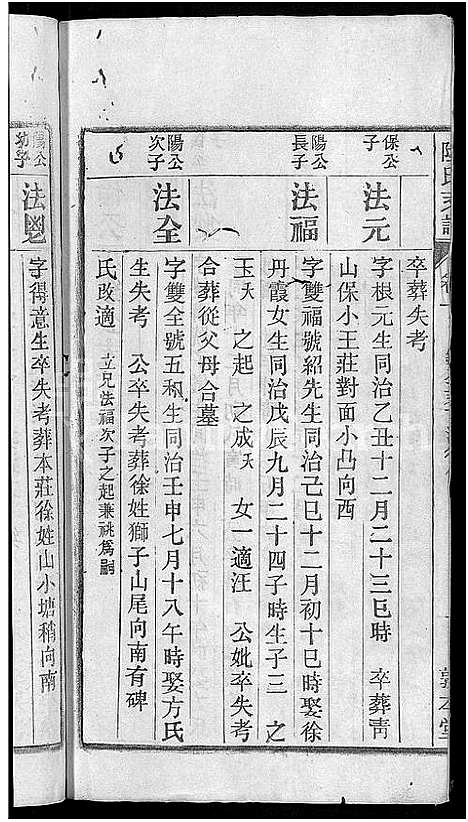 卒葬失考
保公子
法元
字根元生同治乙丑十二月二十三巳時 卒葬靑
山保小王莊對面小凸向西
陽公長子
法福
字雙福號紹先生同治己巳十二月初十巳時娶徐
丹霞女生同治戊辰九月二十四子時生子三 之
玉夭 之起 之成夭 女一適汪 公妣卒失考
合葬從父母合墓
陽公次子
法全
字雙全號五和生同治壬申七月十八午時娶方氏
生失考 公卒失考葬徐姓獅子山尾向南有碑
氏改適 立兄法福次子之起兼祧爲嗣
陽公幼子
法
字得意生卒失考葬本莊徐姓山小塘稍向南